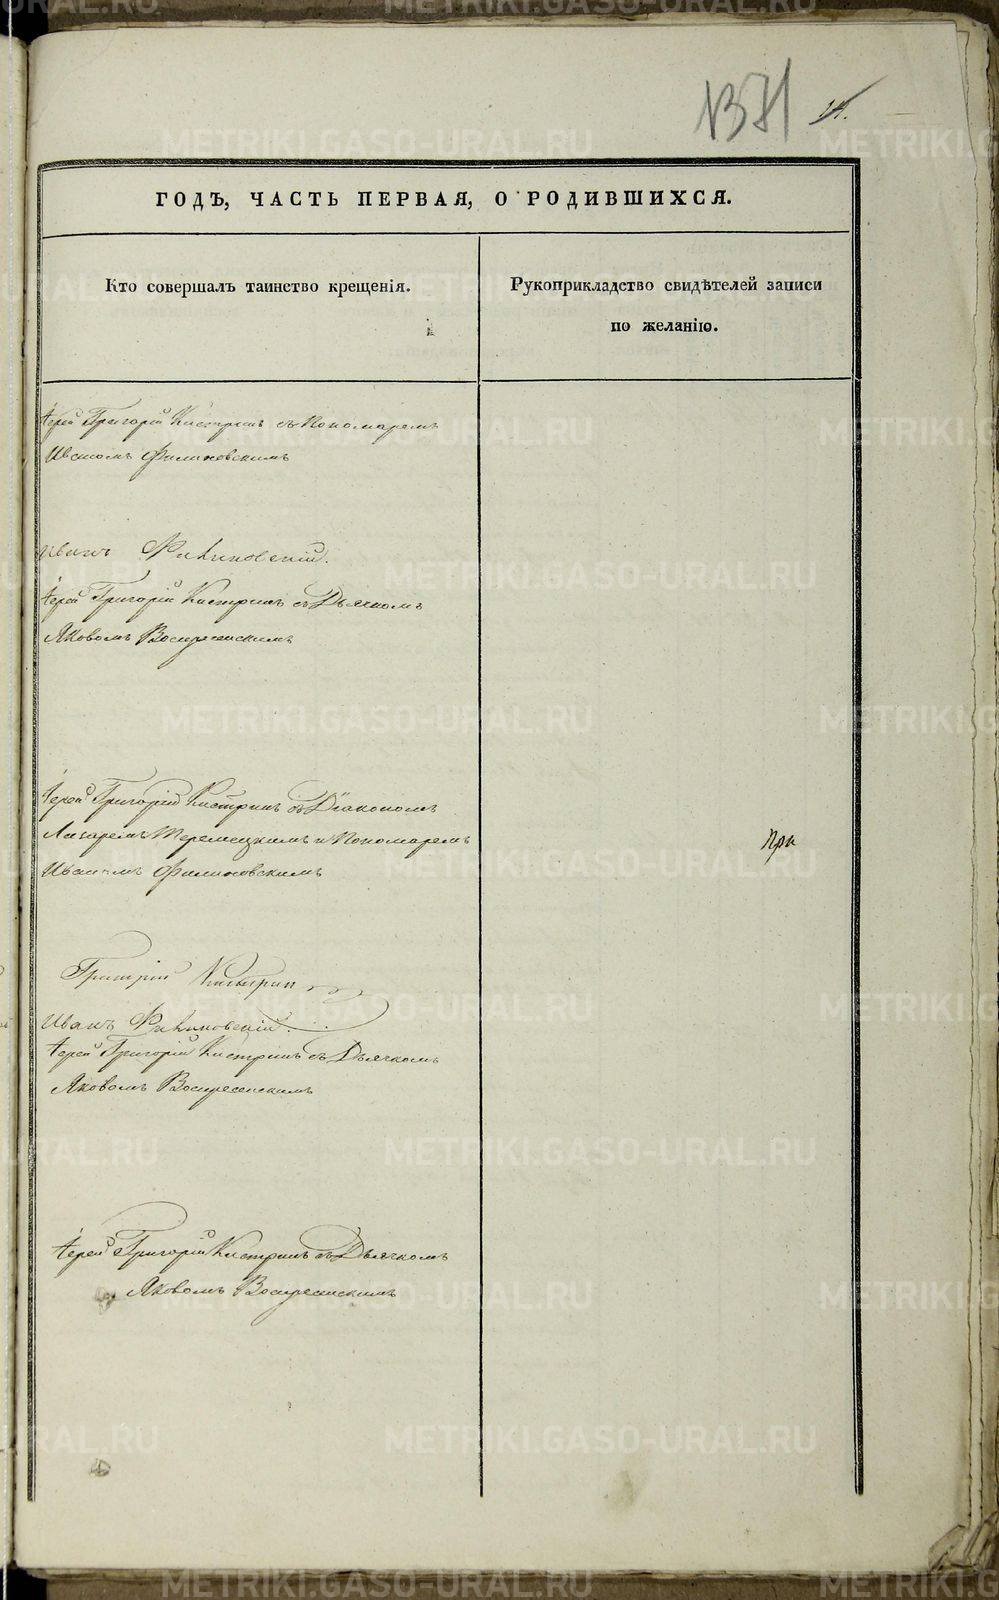 1371
24.
ГОДЪ, ЧАСТЬ ПЕРВАЯ, О РОДИВШИХСЯ.
Кто совершалъ таинство крещенія.
Рукоприкладство свидѣтелей записи
по желанію.
Іерей Григорій Кистринъ съ Пономаремъ
Иваномъ Филиновскимъ
Иванъ Филиновскій.
Іерей Григорій Кистринъ съ Дьячкомъ
Яковомъ Воскресенскимъ
Іерей Григорій Кистринъ съ Діакономъ
Лазаремъ и Пономаремъ
Иваномъ Филиновскимъ
При
Григорій Кистринъ
Иванъ Филиновскій.
Іерей Григорій Кистринъ съ Дьячкомъ
Яковомъ Воскресенскимъ
Іерей Григорій Кистринъ съ Дьячкомъ
Яковомъ Воскресенскимъ
METRIKI.GASO-URAL.RU